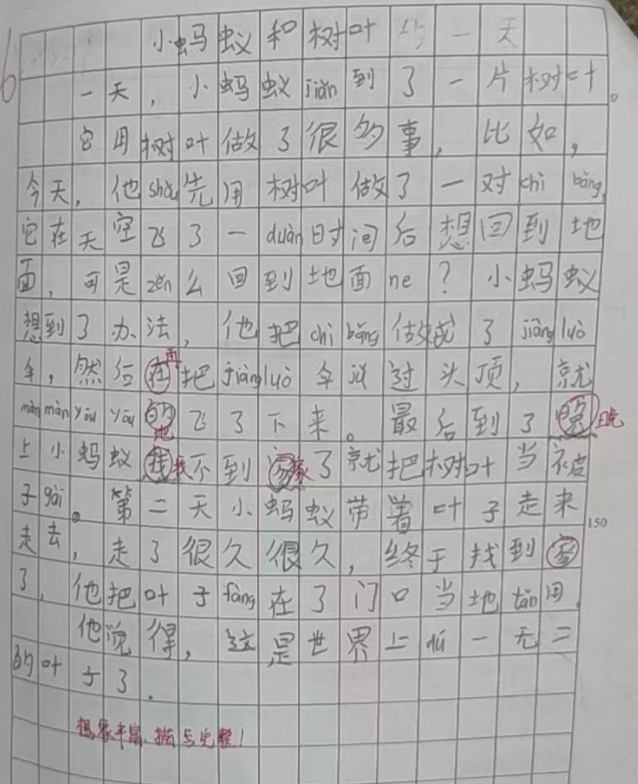 小蚂蚁和树叶的一天
一天，小蚂蚁jiǎn到了一片树叶。
它用树叶做了很多事，比如，
今天，他shǒu先用树叶做了一对chì bǎng，
它在天空飞了一duàn时间后想回到地
面，可是zěn么回到地面ne？小蚂蚁
想到了办法，他把chì bǎng做成了jiàng luò
伞，然后在再把jiàng luò伞过头顶，就
màn màn yōu yōu的地飞了下来。最后到了晚
上小蚂蚁找不到家了就把树叶当被
子gài。第二天小蚂蚁带着叶子走来
走去，走了很久很久，终于找到家
150
了，他把叶子fàng在了门口当地tǎn用，
他说得，这是世界上dú一无二
的叶子了。
想象丰富、描写完整！